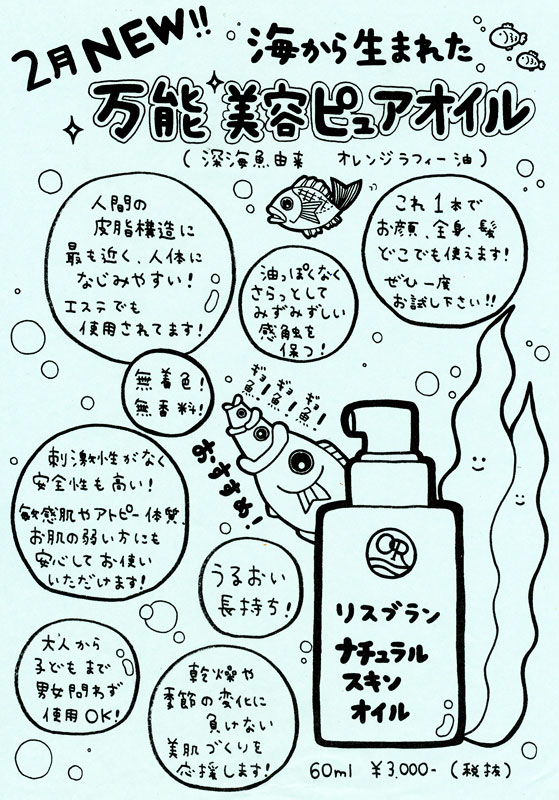 2月NEW!!
海から生まれた
万能 美容ピュアオイル
(深海魚由来 オレンジラフィー油)
人間の
皮脂構造に
最も近く、人体に
なじみやすい!
エステでも
使用されてます!
油っぽくなく
さらっとして
みずみずしい
感触を
保つ!
これ1本で
お顔、全身、髪
どこでも使えます!
ぜひ一度
お試し下さい!!
無着色!
無香料!
ギョ!ギョ!ギョ!
魚!魚!魚!
おすすめ!
刺激性がなく
安全性も高い!
敏感肌やアトピー体質、
お肌の弱い方にも
安心してお使い
いただけます!
うるおい
長持ち!
大人から
子どもまで
男女問わず
使用OK!
乾燥や
季節の変化に
負けない
美肌づくりを
応援します!
OR
リスブラン
ナチュラル
スキン
オイル
60ml ¥3,000-(税抜)